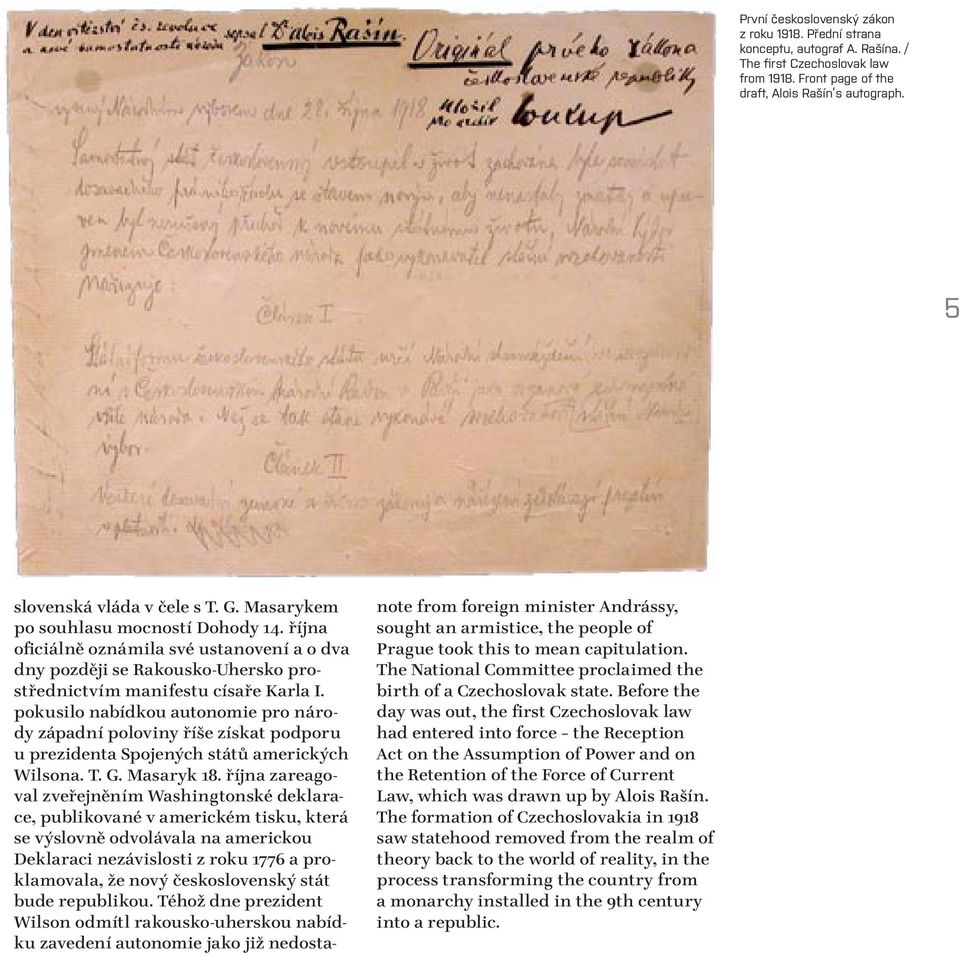 První československý zákon
z roku 1918. Přední strana
konceptu, autograf A. Rašína. /
The first Czechoslovak law
from 1918. Front page of the
draft, Alois Rašín's autograph.
V den vítězství čs. revoluce
a nové samostatnosti národa
sepsal Dr. Alois Rašín.
Originál prvého zákona
československé republiky
Uložil
do archiv
Soukup
Zákon
vydaný Národním výborem dne 28. října 1918
Samostatný stát československý vstoupil v život zachována byla souvislost
dosavadního právního řádu se stavem novým, aby nenastaly zmatky a upra-
ven byl nerušený přechod k novému státnímu životu, Národní Výbor
jménem Československého národa jako vykonavatel státní svrchovanosti
nařizuje:
Článek I
Státní formu československého státu určí Národní shromáždění
ní s Československou Národní Radou v Paříži jako orgánové
vůle národa. Než se tak stane vykonává
výbor.
Článek II
Veškeré dosavadní zemské a říšské zákony a nařízení zůstávají prozatím
v platnosti.
5
slovenská vláda v čele s T. G. Masarykem
po souhlasu mocností Dohody 14. října
oficiálně oznámila své ustanovení a o dva
dny později se Rakousko-Uhersko pro-
střednictvím manifestu císaře Karla I.
pokusilo nabídkou autonomie pro náro-
dy západní poloviny říše získat podporu
u prezidenta Spojených států amerických
Wilsona. T. G. Masaryk 18. října zareago-
val zveřejněním Washingtonské deklara-
ce, publikované v americkém tisku, která
se výslovně odvolávala na americkou
Deklaraci nezávislosti z roku 1776 a pro-
klamovala, že nový československý stát
bude republikou. Téhož dne prezident
Wilson odmítl rakousko-uherskou nabíd-
ku zavedení autonomie jako již nedosta-
note from foreign minister Andrássy,
sought an armistice, the people of
Prague took this to mean capitulation.
The National Committee proclaimed the
birth of a Czechoslovak state. Before the
day was out, the first Czechoslovak law
had entered into force – the Reception
Act on the Assumption of Power and on
the Retention of the Force of Current
Law, which was drawn up by Alois Rašín.
The formation of Czechoslovakia in 1918
saw statehood removed from the realm of
theory back to the world of reality, in the
process transforming the country from
a monarchy installed in the 9th century
into a republic.